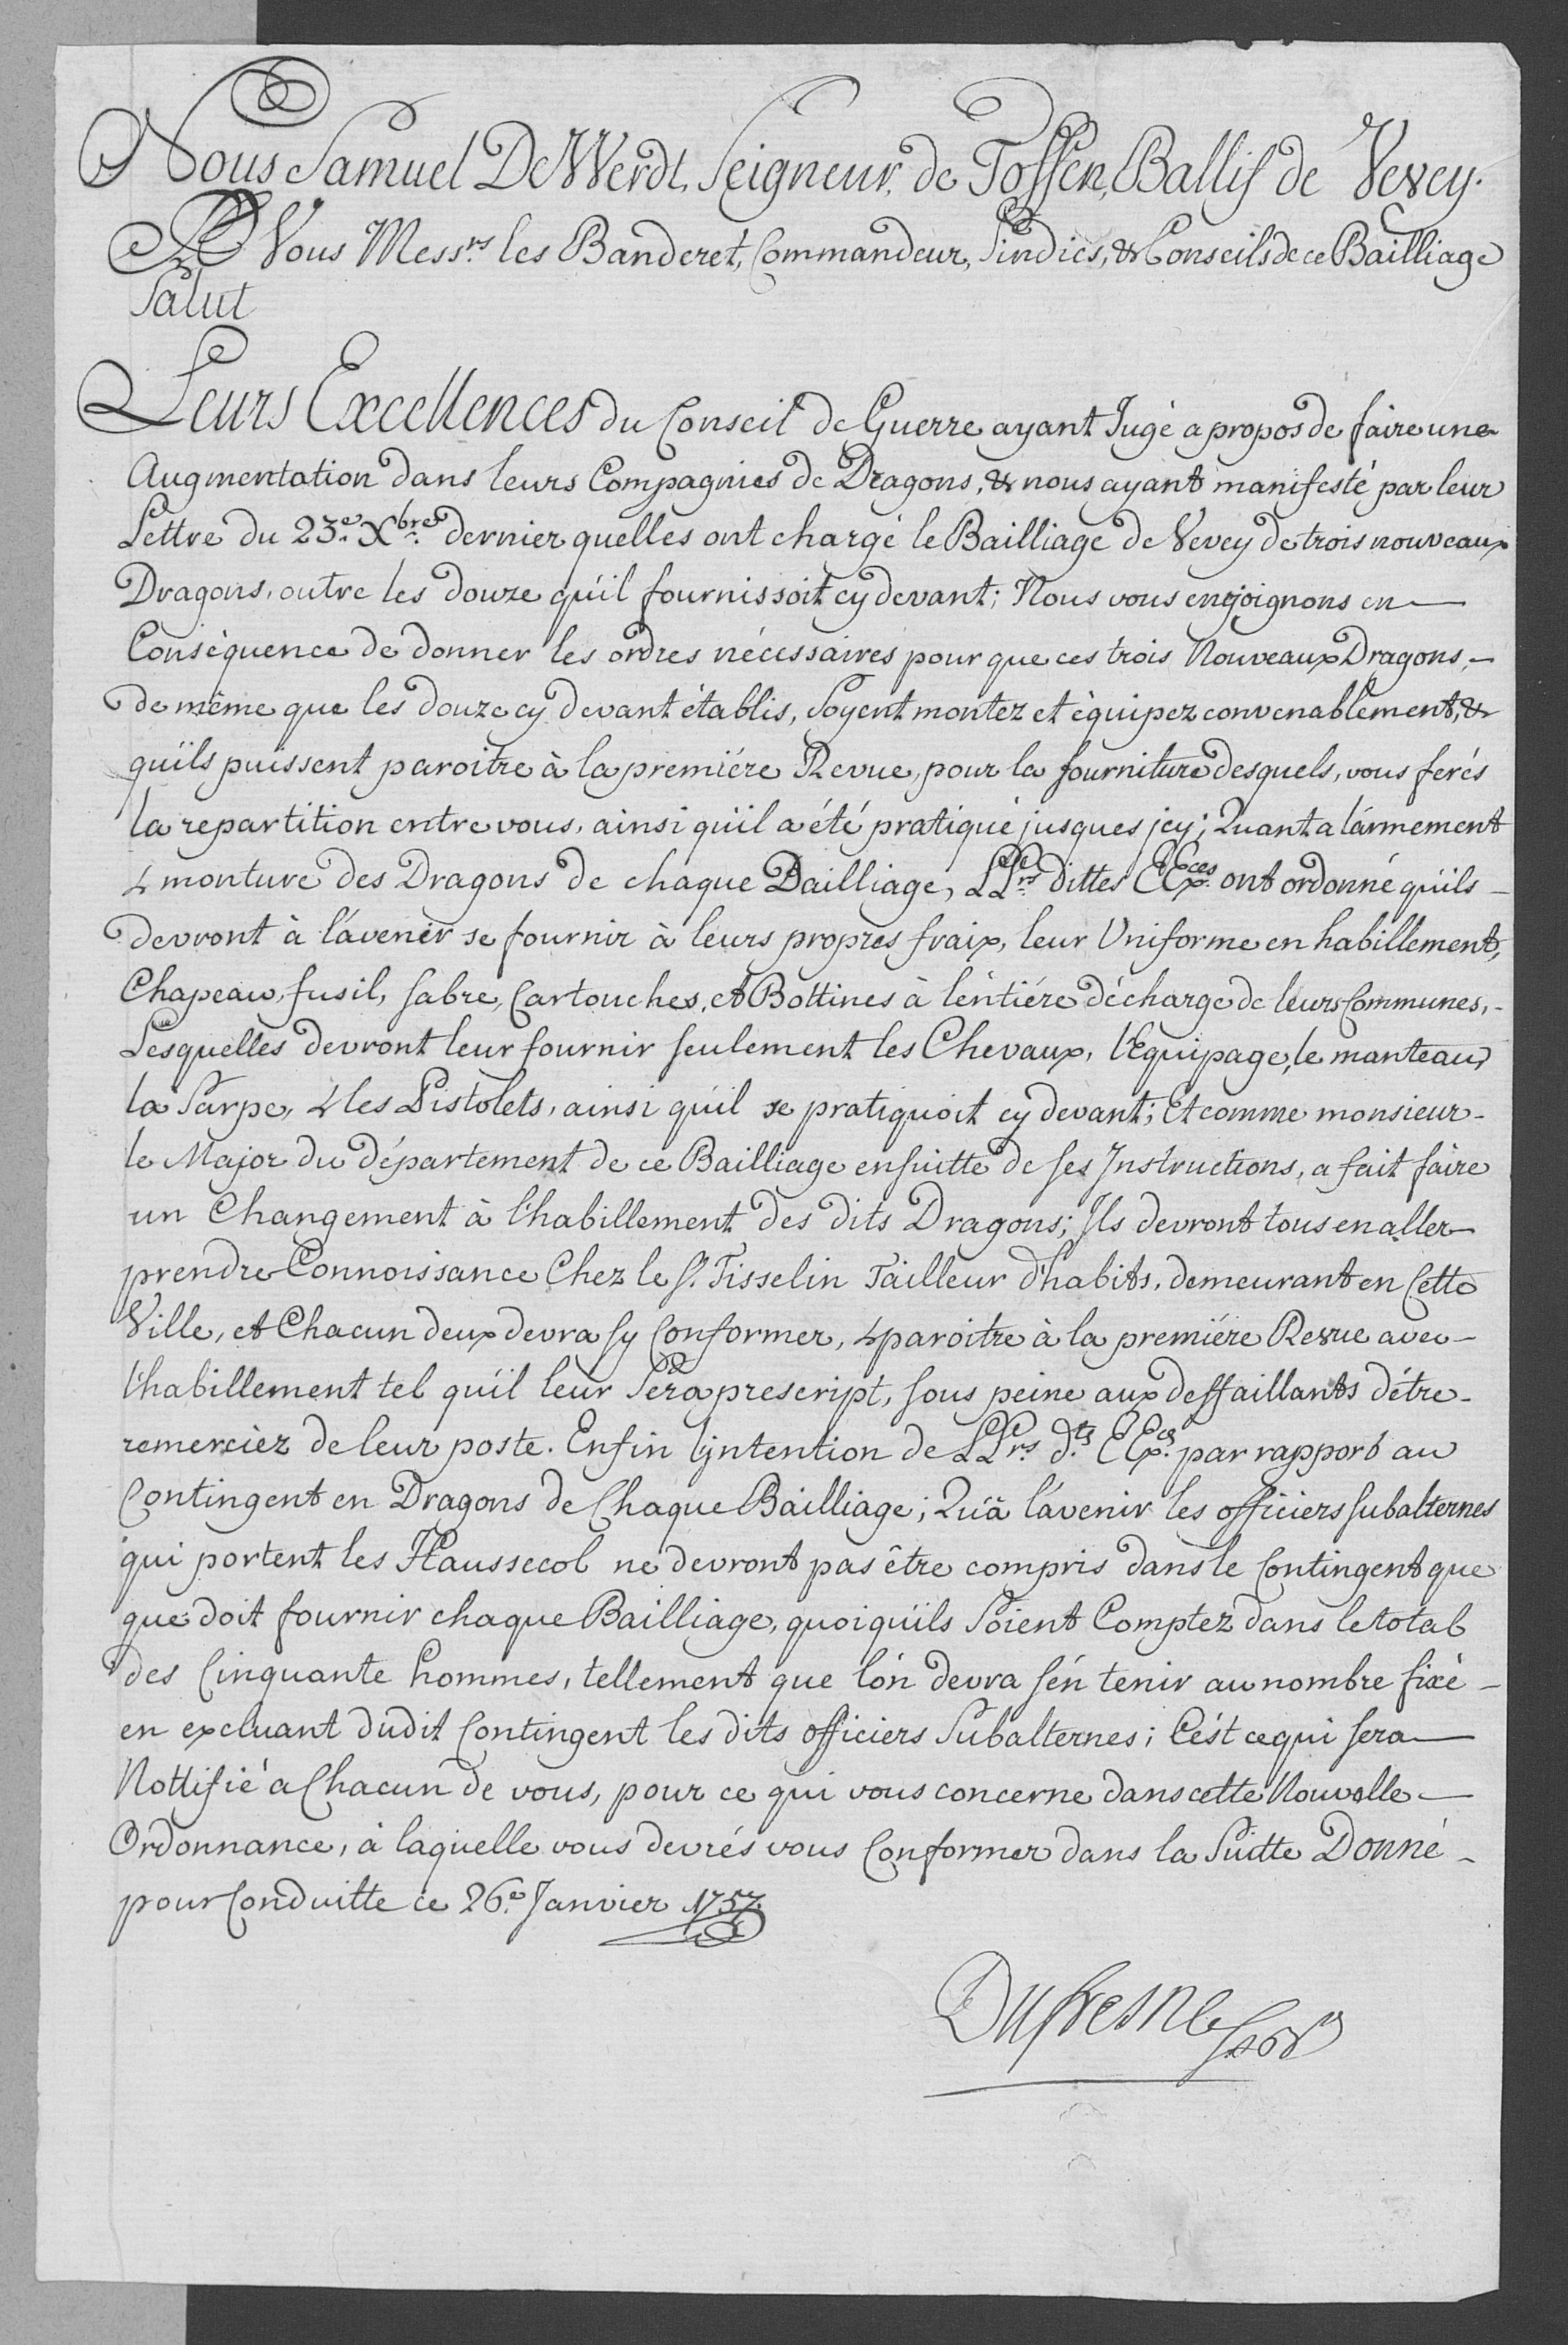 Nous Samuel De Werdt, Seigneur, de Toffen, Ballif de Vevey.
A Vous Mess.rs les Banderet, Commandeur, Sindics, & Conseils de ce Bailliage
Salut
Leurs Excellences du Conseil de Guerre ayant Jugé a propos de faire une
Augmentation dans leurs Compagnies de Dragons, & nous ayant manifesté par leur
Lettre du 23.e Xbre. dernier quelles ont chargé le Bailliage de Vevey de trois nouveaux
Dragons, outre les douze qu'il fournissoit cy devant; Nous vous enjoignons en
Conséquence de donner les ordres nécessaires pour que ces trois Nouveaux Dragons,
de même que les douze cy devant établis, soyent montez et équipez convenablement, &
qu'ils puissent paroitre à la premiére Revue, pour la fourniture desquels, vous ferés
la repartition entre vous, ainsi qu'il a été pratiqué jusques jcy; Quant a l'armement
& monture des Dragons de chaque Bailliage, LLrs. dittes EExces. ont ordonné qu'ils
devront à l'avenir se fournir à leurs propres fraix, leur Uniforme en habillement,
Chapeau, fusil, sabre, Cartouches, et Bottines à l'entiére décharge de leurs Communes,
Lesquelles devront leur fournir seulement les Chevaux, l'Equipage, le manteau
la Sarpe, & les Pistolets, ainsi qu'il se pratiquoit cy devant; Et comme monsieur
le Major du département de ce Bailliage ensuitte de ses Jnstructions, a fait faire
un Changement à l'habillement des dits Dragons; Jls devront tous en aller
prendre Connoissance Chez le S.r Tisselin Tailleur d'habits, demeurant en Cette
Ville, et Chacun deux devra sy Conformer, & paroitre à la premiére Revue avec
l'habillement tel qu'il leur sera prescript, sous peine aux deffaillants d'étre
remerciez de leur poste. Enfin l'jntention de LLrs. d.tes EExces. par rapport au
Contingent en Dragons de Chaque Bailliage; Qu'à l'avenir les officiers subalternes
qui portent les Haussecol ne devront pas être compris dans le Contingent que
que doit fournir chaque Bailliage, quoiqu'ils soient Comptez dans le total
des Cinquante hommes, tellement que l'on devra s'en tenir au nombre fixé
en excluant dudit Contingent les dits officiers Subalternes; C'est ce qui sera
Nottifié a Chacun de vous, pour ce qui vous concerne dans cette Nouvelle
Ordonnance, à laquelle vous devrés vous Conformer dans la Suitte Donné
pour Conduitte ce 26.e Janvier 1757.
Dufresne